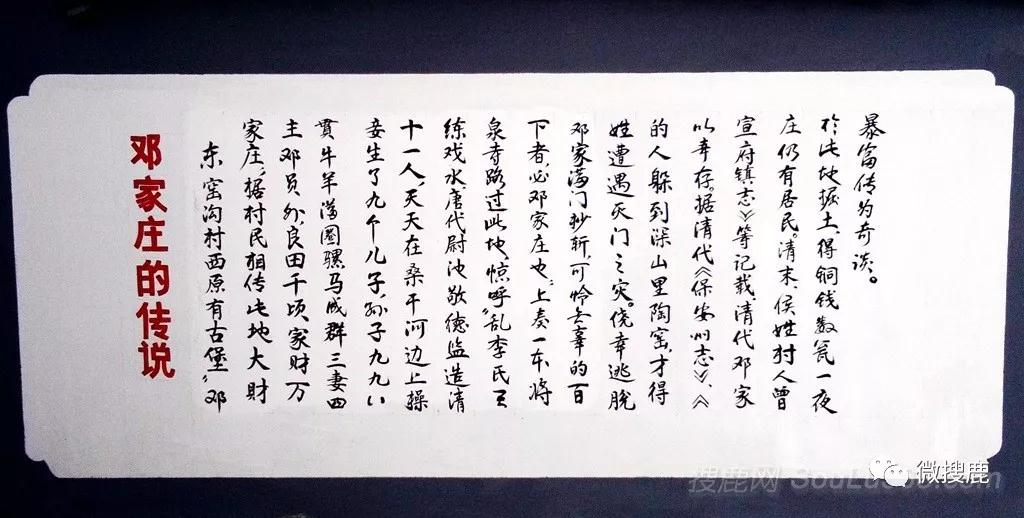 邓家庄的传说
东窑沟村西原有古堡“邓
家庄”,据村民相传此地大财
主邓员外,良田千顷,家财万
贯牛羊满圈骡马成群三妻四
妾生了九个儿子,孙子九九八
十一人,天天在桑干河边上操
练戏水,唐代尉迟敬德监造清
泉寺路过此地,惊呼“乱李氏天
下者,必邓家庄也”,上奏一本,将
邓家满门抄斩,可怜无辜的百
姓遭遇灭门之灾。侥幸逃脱
的人躲到深山里陶窑,才得
以幸存。据清代《保安州志》、《
宣府镇志》等记载,清代邓家
庄仍有居民。清末,侯姓村人曾
於此地掘土,得铜钱数瓮一夜
暴富传为奇谈。
微搜鹿